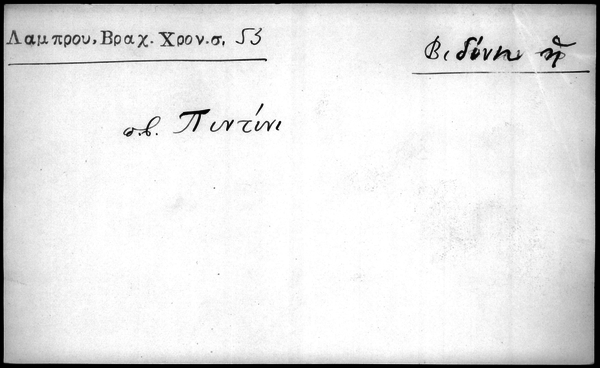 Λαμπρου, Βραχ. Χρον. σ. 53
Βιδύνη ἡ
σ.β. Πιντίνι